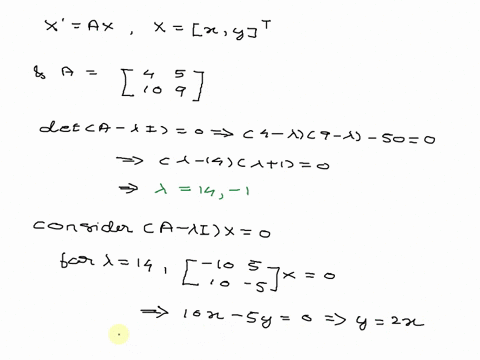 X' = AX , X = [x, y]ᵀ
& A = [ 4 5
10 9 ]
det(A-λI) = 0 ⇒ (4-λ)(9-λ) - 50 = 0
⇒ (λ-14)(λ+1) = 0
⇒ λ = 14, -1
consider (A-λI)X = 0
for λ = 14, [ -10 5
10 -5 ] X = 0
⇒ 10x - 5y = 0 ⇒ y = 2x